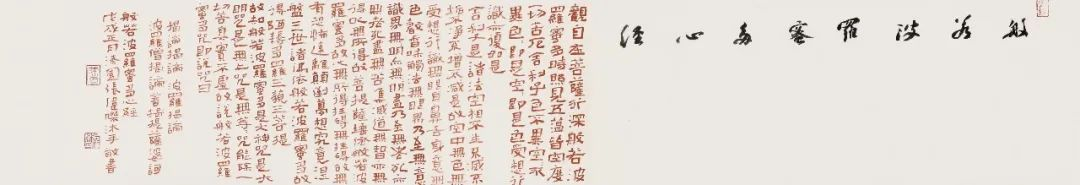 般若波羅蜜多心經
觀自在菩薩行深般若波
羅蜜多時照見五蘊皆空度
一切苦厄舍利子色不異空空不
異色色即是空空即是色受想行
識亦復如是
舍利子是諸法空相不生不滅不
垢不淨不增不減是故空中無色無
受想行識無眼耳鼻舌身意無
色聲香味觸法無眼界乃至無意
識界無無明亦無無明盡乃至無老死亦
無老死盡無苦集滅道無智亦無
得以無所得故菩提薩埵依般若波
羅蜜多故心無罣礙無罣礙故無
有恐怖遠離顛倒夢想究竟涅
槃三世諸佛依般若波羅蜜多故
得阿耨多羅三藐三菩提
故知般若波羅蜜多是大神咒是大
明咒是無上咒是無等等咒能除一
切苦真實不虛故說般若波羅
蜜多咒即說咒曰
揭諦揭諦 波羅揭諦
波羅僧揭諦 菩提薩婆訶
般若波羅蜜多心經
戊戌正月 敬書